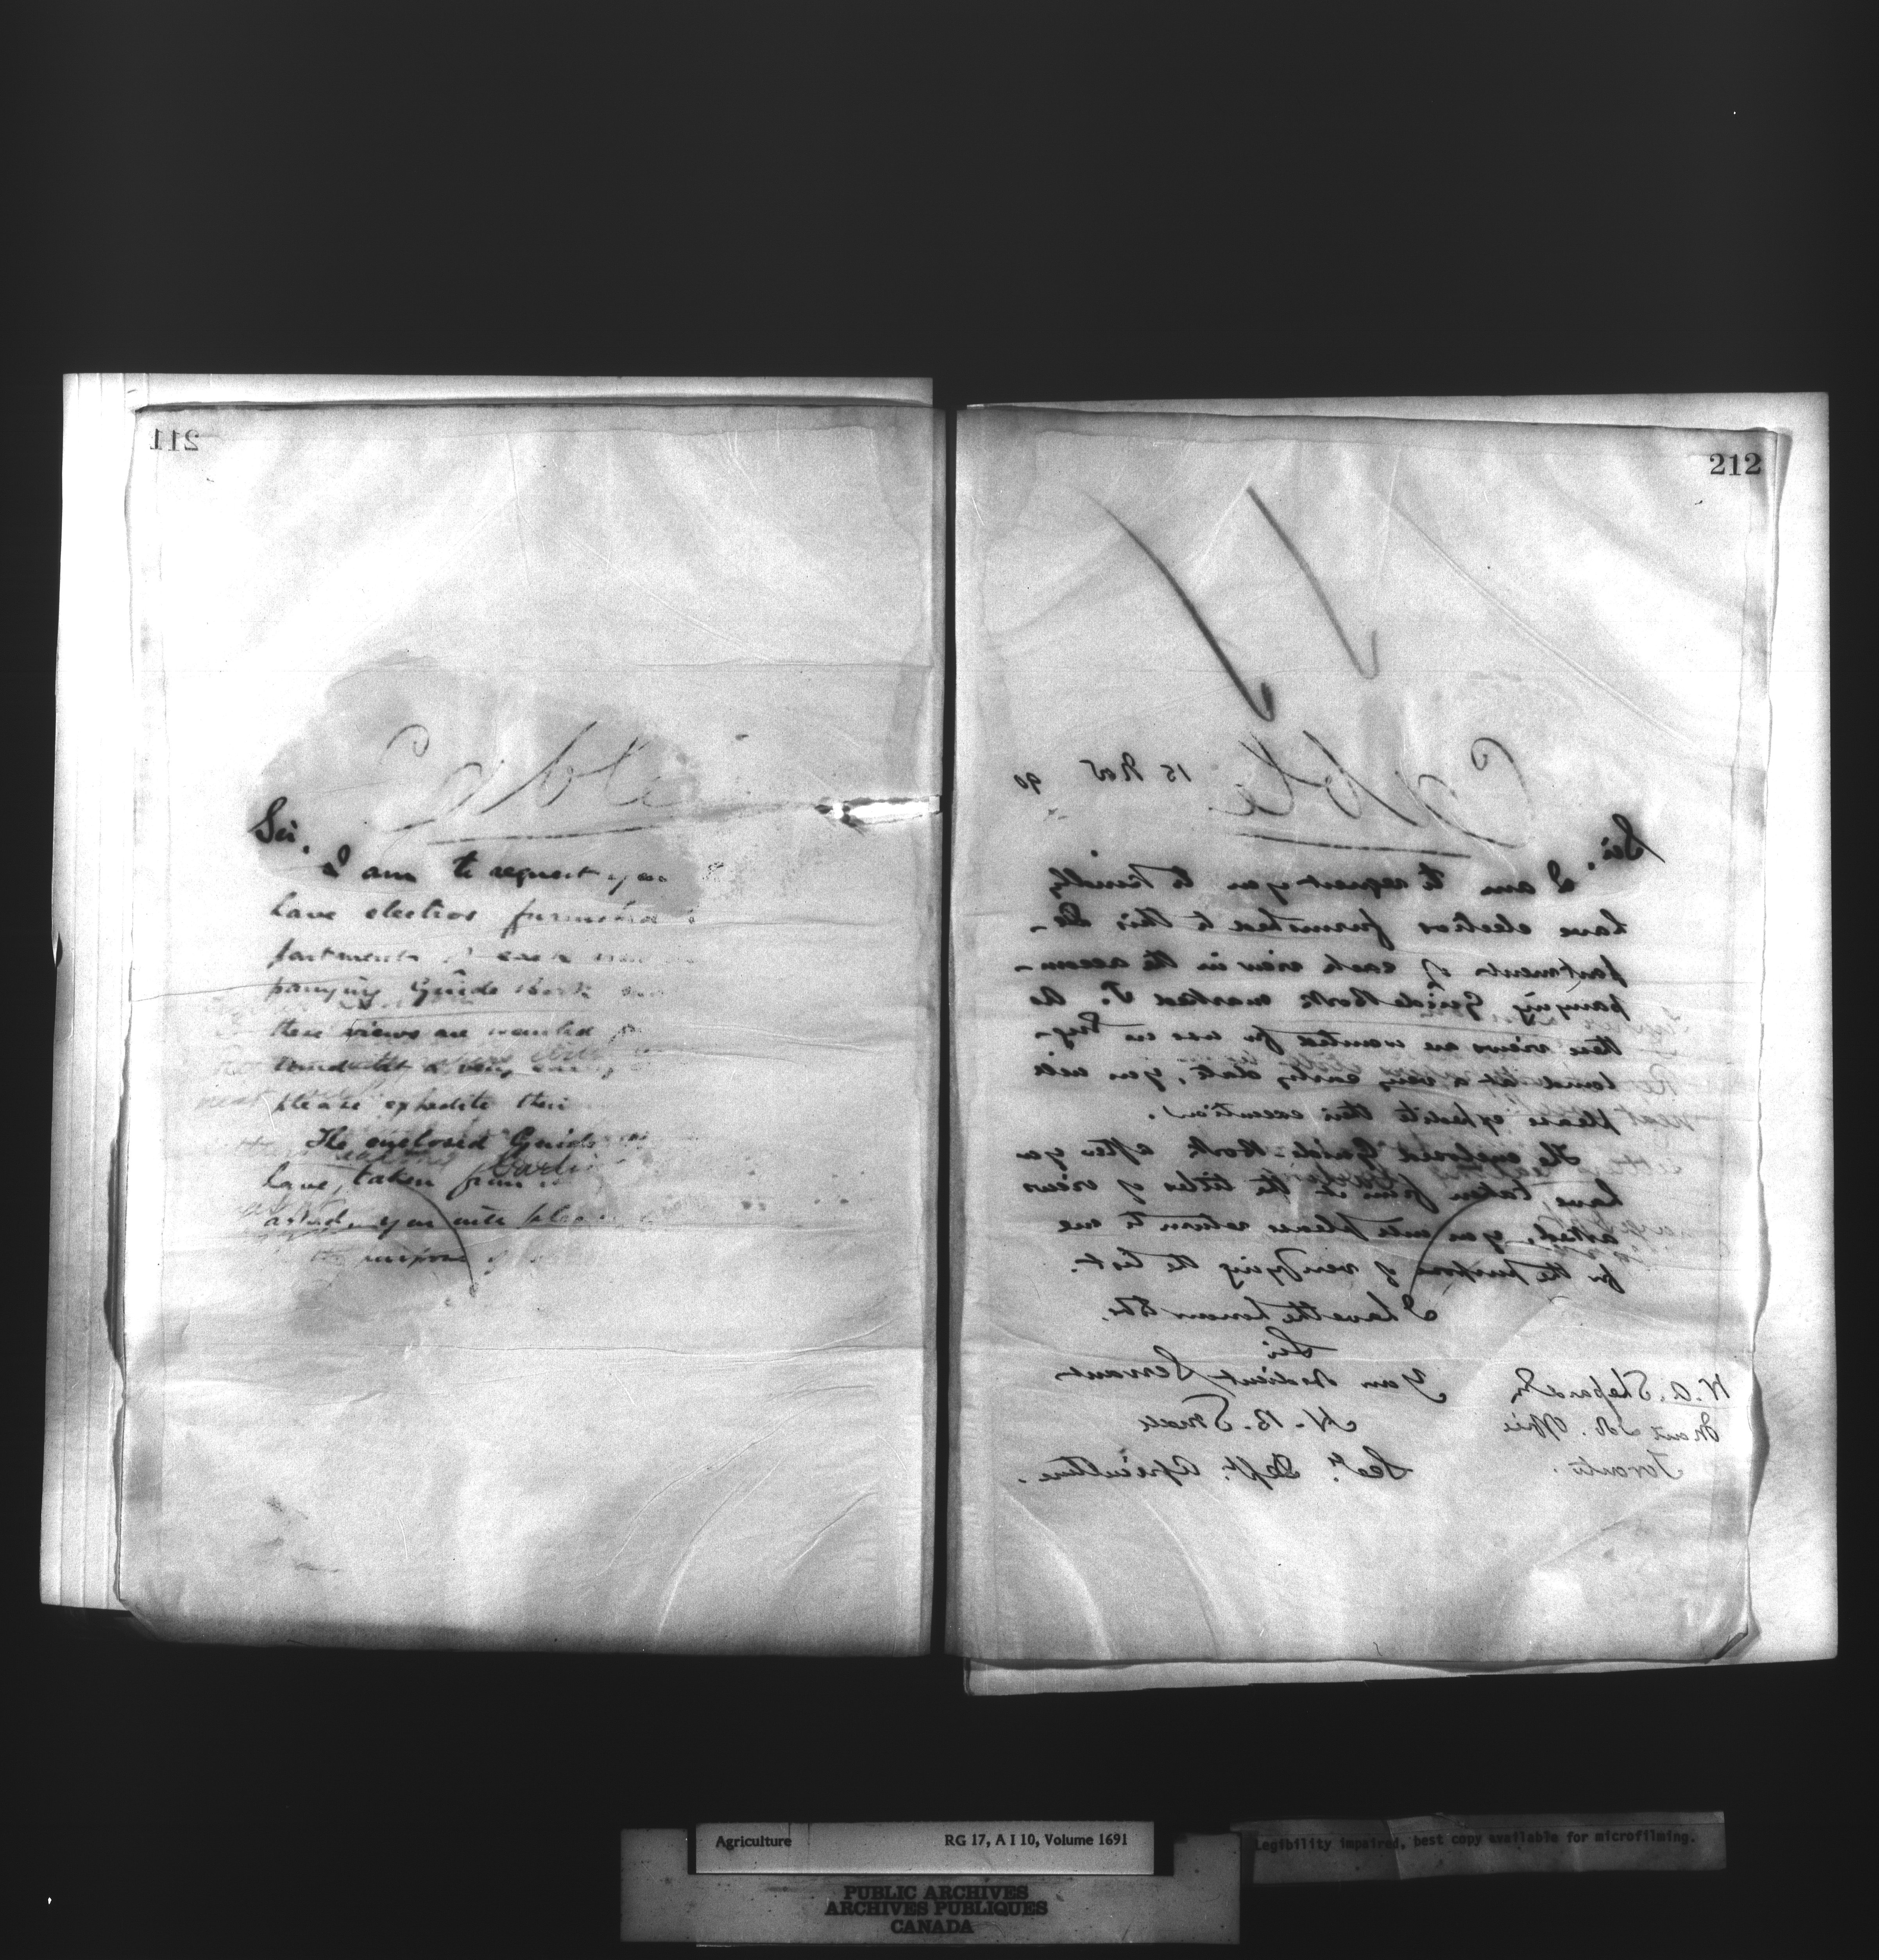 211
Cable
Sir.
I am to request you
have electros furnished
partment each
panying Guide Book
these views are wanted
land at a very early
please expedite their
The enclosed Guide
have, taken from it
asked, you will please
the purpose of
212
Cable
15 Nov 90
Sir.
I am to request you to kindly
have electros furnished to this De-
partment of each view in the accom-
panying Guide Book marked J. As
these views are wanted for use in Eng-
land at a very early date, you will
please expedite their execution.
The enclosed Guide-Book after you
have, taken from it the titles of views
asked, you will please return to me
for the purpose of verifying the list.
I have the honour to be.
Sir
Your Obedient Servant
H. B. Small
Secy. Dept. Agriculture.
W. A. Shepard
Mail Job. Office
Toronto.
Agriculture RG 17, A I 10, Volume 1691
Legibility impaired, best copy available for microfilming.
PUBLIC ARCHIVES
ARCHIVES PUBLIQUES
CANADA